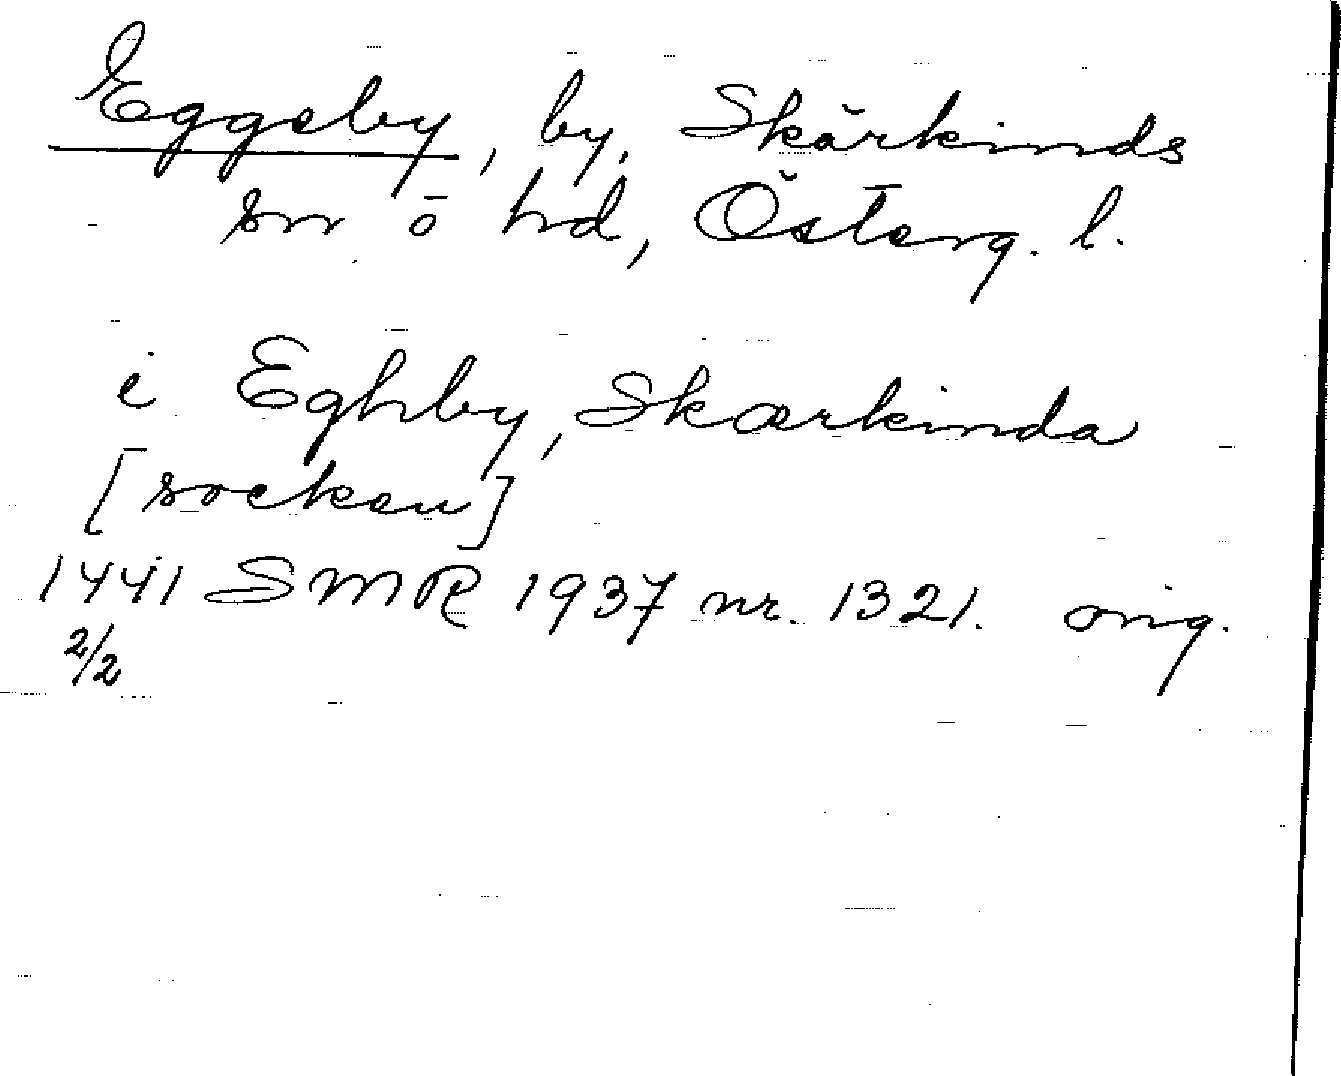 Eggeby, by, Skärkinds
sn o hd, Österg. l.
i Eghby, Skærkinda
[socken]
1441 SMR 1937 nr. 1321. orig.
2/2